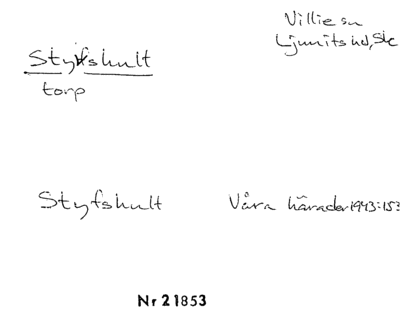 Villie sn
Ljunits hd, Sk
Styfshult
torp
Styfshult Våra härader 1943:153
Nr 21853